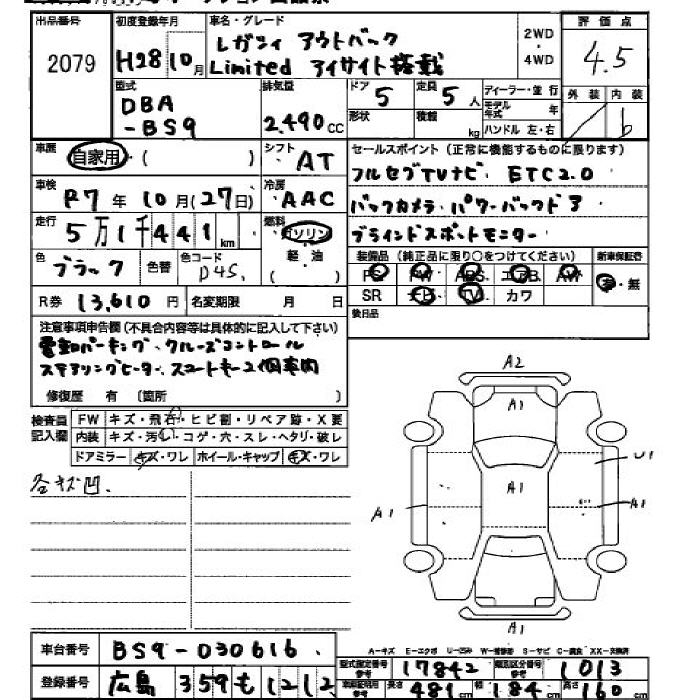 出品番号 2079
初度登録年月 H28 10月
車名・グレード レガシィ アウトバック
Limited アイサイト搭載
2WD・4WD
評価点 4.5
外装 内装 b
型式 DBA-BS9
排気量 2.490cc
ドア 5 定員 5人
形状 積載 kg
ディーラー・並行
モデル年式 年
ハンドル 左・右
車歴 自家用・( )
シフト AT
車検 R7年10月(27日)
冷房 AAC
走行 5万1千441km
燃料 ガソリン・軽油 ( )
色 ブラック 色替 色コード D4S
R券 13,610円 名変期限 月 日
セールスポイント (正常に機能するものに限ります)
フルセグTVナビ・ETC2.0
バックカメラ・パワーバックドア
ブラインドスポットモニター
装備品 (純正品に限り○をつけてください) 新車保証書
PS PW ABS エアB AW 有・無
SR ナビ TV カワ
後日品
注意事項申告欄 (不具合内容等は具体的に記入して下さい)
電動パーキング、クルーズコントロール
ステアリングヒーター、スマートキー2個車内
修復歴 有 〔箇所 〕
検査員記入欄
FW キズ・飛石・ヒビ割・リペア跡・X要
内装 キズ・汚レ・コゲ・穴・スレ・ヘタリ・破レ
ドアミラー キズ・ワレ ホイール・キャップ キズ・ワレ
各キズ凹.
A2
A1
U1
A1
A1
A1
A1
A-キズ E-エクボ U-凹み W-補修跡 S-サビ C-腐食 XX-交換済
車台番号 BS9-030616
登録番号 広島 359も1212
型式指定番号 17842 類別区分番号 1013
車両証明用参考 長さ 481cm 幅 184cm 高さ 160cm